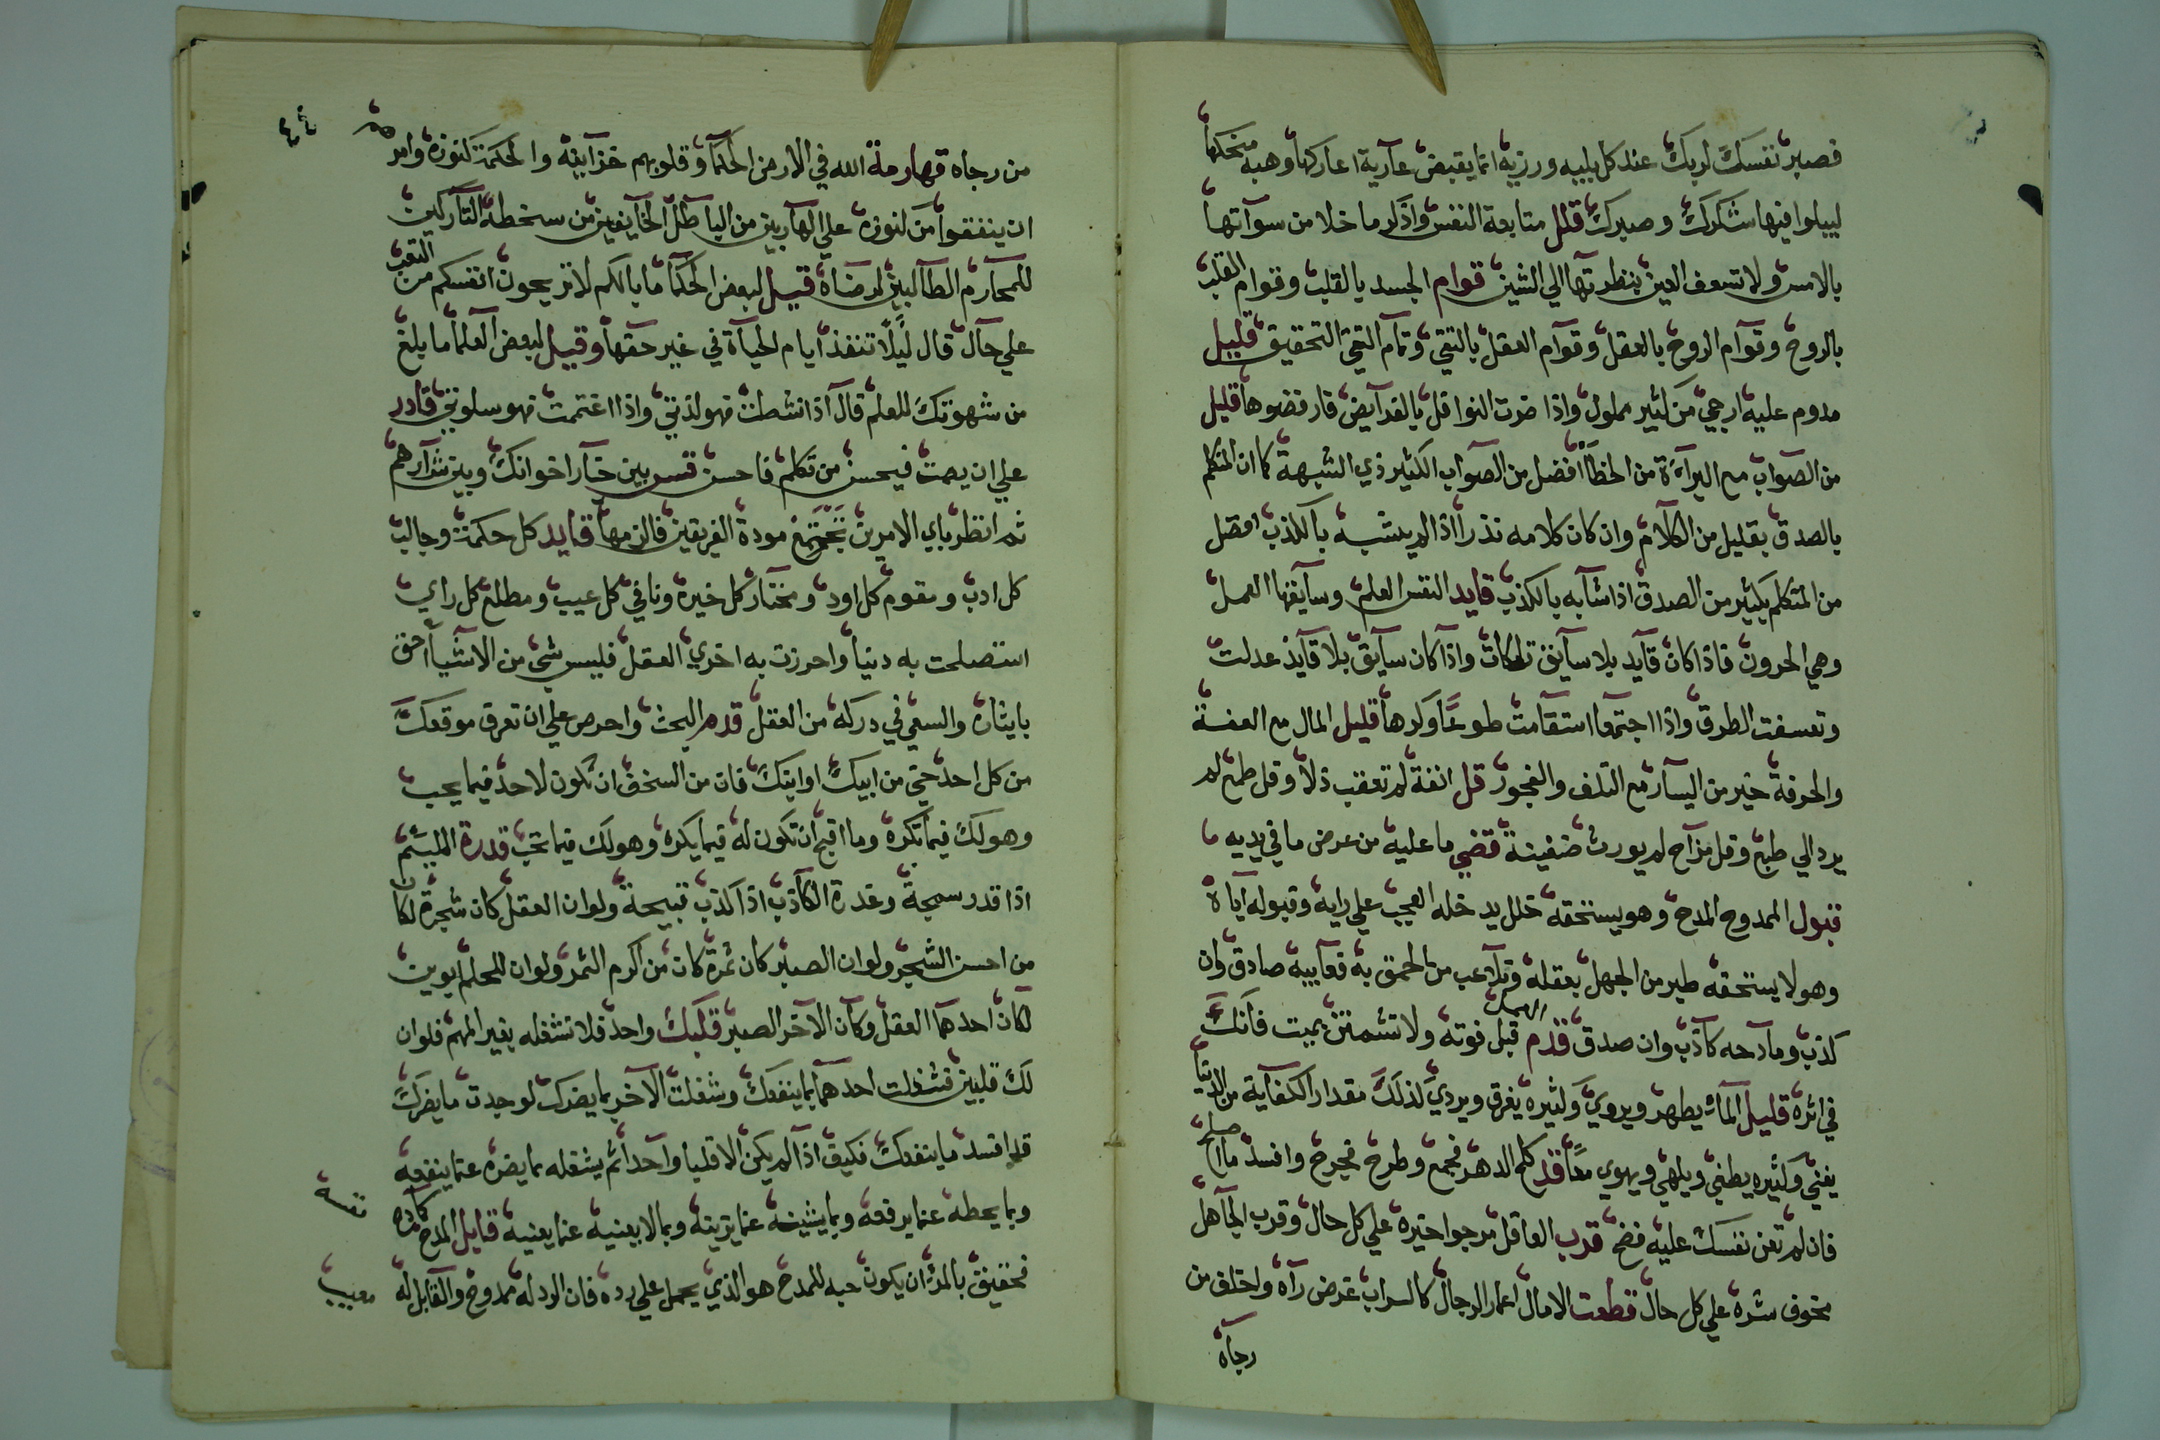 فصبر نفسك لربك عند كل بليه ورزية انما يقبض عارية اعاركها وهبه منحكها
ليبلوا فيها شكرك وصبرك قلل متابعة النفس واذكر ما خلا من سوآتها
بالامس ولا تسعف العين بنظرتها الي الشين قوام الجسد بالقلب وقوام القلب
بالروح وقوام الروح بالعقل وقوام العقل بالتقي وتمام التقي التحقيق قليل
مدوم عليه ارجي من كثير مملول واذا ضرت النوافل بالفرايض فارفضوها قليل
من الصواب مع البرآءة من الخطأ افضل من الصواب الكثير ذي الشبهة كما ان المتكلم
بالصدق بقليل من الكلام وان كان كلامه نذرا اذا لم يشبه بالكذب افضل
من المتكلم بكثير من الصدق اذا شابه بالكذب قايد النفس العلم وسايقها العمل
وهي الحرون فاذا كان قايد بلا سايق تلكات واذا كان سايق بلا قايد عدلت
وتعسفت الطرق واذا اجتمعا استقامت طوعا وكرها قليل المال مع العفة
والحرفة خير من اليسار مع التلف والفجور قل انفة لم تعقب ذلا وقل طمع لم
يرد الي طبع وقل مزاح لم يورث ضغينة قضي ما عليه من عرض ما في يديه
قبول الممدوح المدح وهو يستحقه خلل يدخله العجب علي رايه وقبوله اياه
وهو لا يستحقه طير من الجهل بعقله وتلاعب من الحمق به فعايبه صادق وان
كذب ومادحه كاذب وان صدق قدم العمل قبل فوته ولا تشمتن بميت فانك
في اثره قليل المآء يطهر ويروي وكثيره يغرق ويردي لذلك مقدار الكفاية من الدنيا
يغني وكثيره يطغي ويلهي ويهوي معا قد كلح الدهر فجمع وطرح فجرح وافسد ما اصلح
فان لم تعن نفسك عليه فضح قرب العاقل مرجوا خيره علي كل حال وقرب الجاهل
مخوف شره علي كل حال قطعت الامال اعمار الرجال كالسراب غرض رآه واخلف من
رجاه
٤٤
من رجاه قهارمة الله في الارض الحكمآ وقلوبهم خزاينه والحكمة كنوزه وامرهم
ان ينفقوا من كنوزه علي الهاربين من الباطل الخايفين من سخطه التاركين
للمحارم الطالبين لرضاه قيل لبعض الحكما ما بالكم لا تريحون انفسكم من التعب
علي حال قال ليلا تنفذ ايام الحياة في غير حقها وقيل لبعض العلما ما بلغ
من شهوتك للعلم قال اذا نشطت فهو لذتي واذا اغتممت فهو سلوتي قادر
علي ان يصمت فيحسن من تكلم فاحسن قس بين خيار اخوانك وبين شرارهم
ثم انظر باي الامرين تجتمع مودة الفريقين فالزمها قايد كل حكمة وجالب
كل ادب ومقوم كل اود ومختار كل خيره ونافي كل عيب ومطلع كل راي
استصلحت به دنيا واحرزت به اخري العقل فليس شي من الاشيا احق
بايثاره والسعي في دركه من العقل قدم البحث واحرص علي ان تعرف موقعك
من كل احد حتي من ابيك او ابنك فان من السخف ان تكون لاحد فيما يحب
وهو لك فيما تكره وما اقبح ان تكون له فيما يكره وهو لك فيما تحب قدرة الليئم
اذا قدر سمجة وعذرة الكاذب اذا كذب قبيحة ولو ان العقل كان شجرة لكان
من احسن الشجر ولو ان الصبر كان ثمرة كان من اكرم الثمر ولو ان للحلم ابوين
لكان احدهما العقل وكان الآخر الصبر قلبك واحد فلا تشغله بغير المهم فلو ان
لك قلبين فشغلت احدهما بما ينفعك وشغلت الآخر بما يضرك لوجدت ما يضرك
قد افسد ما ينفعك فكيف اذا لم يكن الا قلبا واحدا ثم يشغله بما يضره عما ينفعه
وبما يحطه عما يرفعه وبما يشينه عما يزينه وبما لا يعنيه عما يعنيه قابل المدح كمادح
نفسه
فحقيق بالمرء ان يكون حبه للمدح هو الذي يحمل علي رده فان الراد له ممدوح والقابل له
معيب